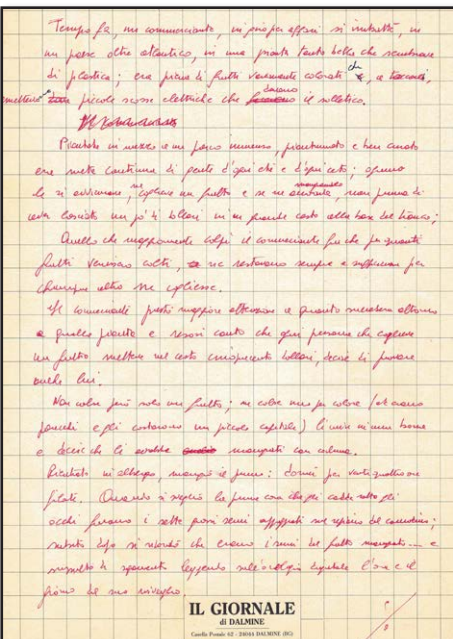 Tempo fa, un commerciante, in giro per affari si imbatté, in
un paese oltre atlantico, in una pianta tanto bella che sembrava
di plastica; era piena di frutti veramente colorati che, a toccarli,
emettevano piccole scosse elettriche che davano il solletico.
Piantata in mezzo a un parco immenso, pianeggiante e ben curato
era meta continua di gente d'ogni età e d'ogni ceto; ognuno
le si avvicinava, ne coglieva un frutto e se ne mangiando, non prima di
aver lasciato un po' di dollari in un grande cesto alla base del tronco;
Quello che maggiormente colpì il commerciante fu che per quanti
frutti venissero colti, ne restavano sempre a sufficienza per
chiunque altro ne cogliesse.
Il commerciante prestò maggiore attenzione a quanto succedeva attorno
a quella pianta e resosi conto che ogni persona che coglieva
un frutto metteva nel cesto cinquecento dollari, decise di provare
anche lui.
Non colse però solo un frutto; ne colse uno per colore (ed erano
parecchi e gli costarono un piccolo capitale) li mise in una borsa
e decise che li avrebbe mangiati con calma.
Rientrato in albergo, mangiò il primo: dormì per ventiquattro ore
filate. Quando si svegliò la prima cosa che gli cadde sotto gli
occhi furono i sette grossi semi appoggiati sul ripiano del comodino;
subito dopo si ricordò che erano i semi del frutto mangiato... e
sussultò di spavento leggendo sull'orologio digitale l'ora e il
giorno del suo risveglio.
IL GIORNALE
di DALMINE
Casella Postale 62 - 24044 DALMINE (BG)